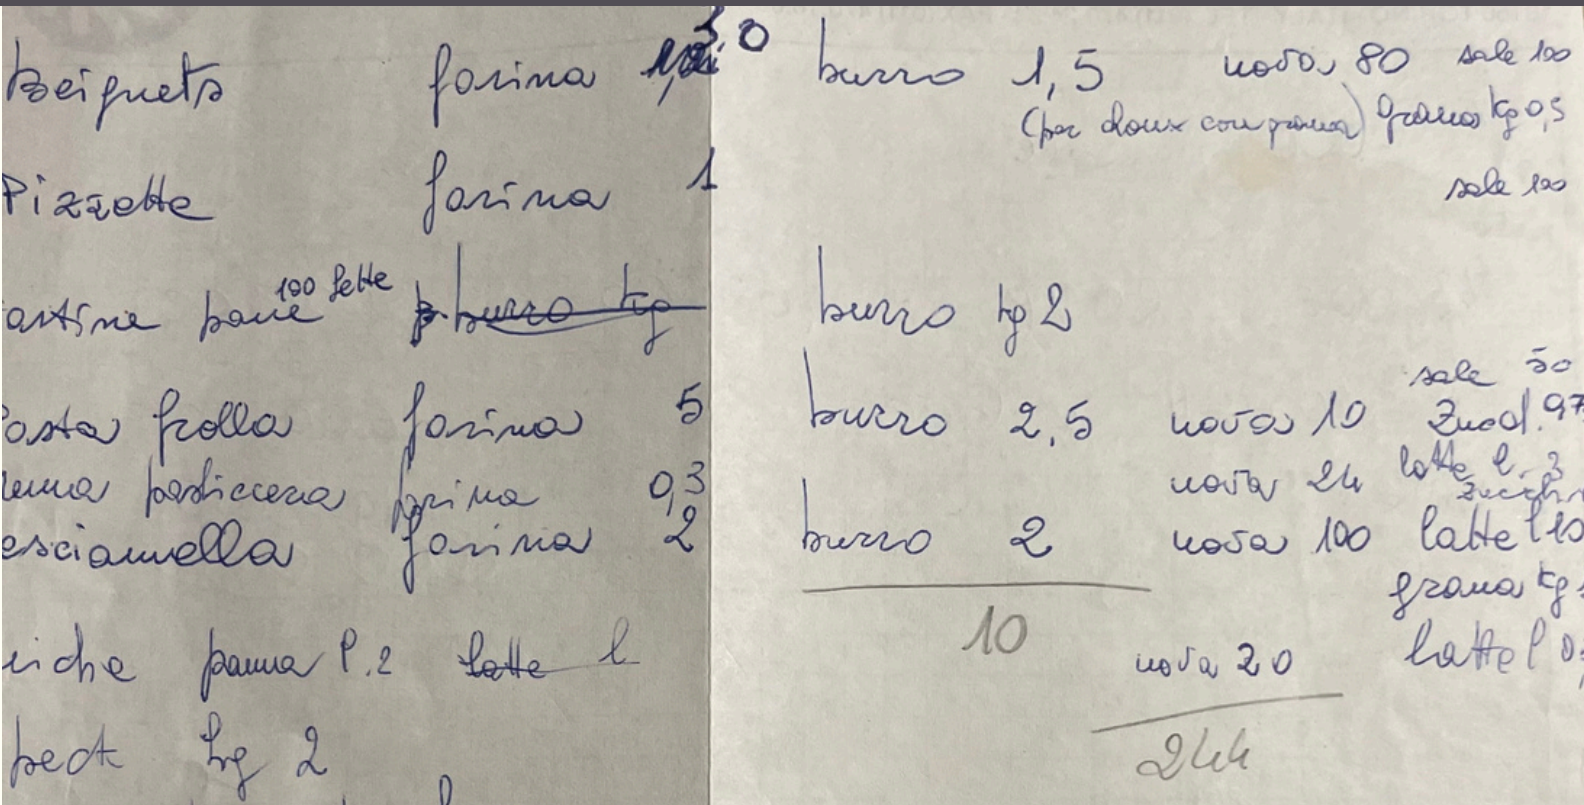 Beignets farina 3 0 burro 1,5 uova 80 sale 100
(per choux con grana) grana kg 0,5
Pizzette farina 1 sale 100
100 fette
artine pane burro kg burro kg 2
sale 50
asta frolla farina 5 burro 2,5 uova 10 Zucch.
ema pasticcera farina 0,3 uova 24 latte l. 3
esciamella farina 2 burro 2 uova 100 latte l 10
grana kg
10
iche panna l. 2 latte l uova 20 latte l 0,
244
kg 2